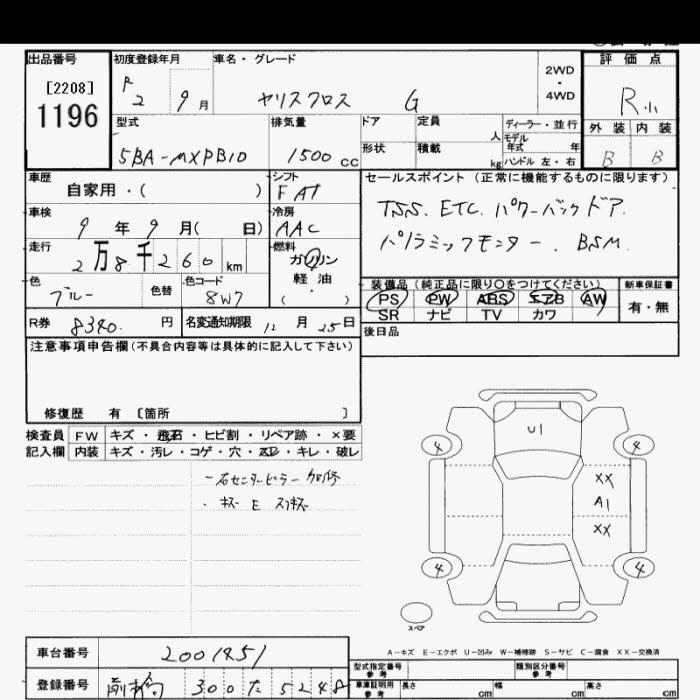 出品番号
[2208]
1196
初度登録年月
R 2 9 月
車名・グレード
ヤリスクロス G
2WD
・
4WD
評価点
R
外装 内装
B B
型式
5BA-MXPB10
排気量
1500 cc
ドア
形状
定員
人
積載
kg
ディーラー・並行
モデル
年式 年
ハンドル 左・右
車歴
自家用・( )
シフト
FAT
車検
9 年 9 月( 日)
冷房
AAC
走行
2 万 8 千 2 6 0 km
燃料
ガソリン
・
軽油
( )
色
ブルー
色替
色コード
8W7
R券 8340. 円
名変通知期限 12 月 25 日
セールスポイント (正常に機能するものに限ります)
TSS. ETC. パワーバックドア.
パノラミックモニター. BSM.
装備品(純正品に限り○をつけてください)
PS PW ABS エアB AW
SR ナビ TV カワ
新車保証書
有・無
後日品
注意事項申告欄(不具合内容等は具体的に記入して下さい)
修復歴 有 [箇所 ]
検査員
記入欄
FW キズ・飛石・ヒビ割・リペア跡・×要
内装 キズ・汚レ・コゲ・穴・スレ・キレ・破レ
右センターピラー加修
・キズ E スリキズ
U1
4 4
XX
A1
XX
4 4
スペア
A-キズ E-エクボ U-凹み W-補修跡 S-サビ C-腐食 XX-交換済
車台番号
2001851
登録番号
前橋 300 た 5248
型式指定番号
参考
類別区分番号
参考
車庫証明用
参考
長さ cm
幅 cm
高さ cm